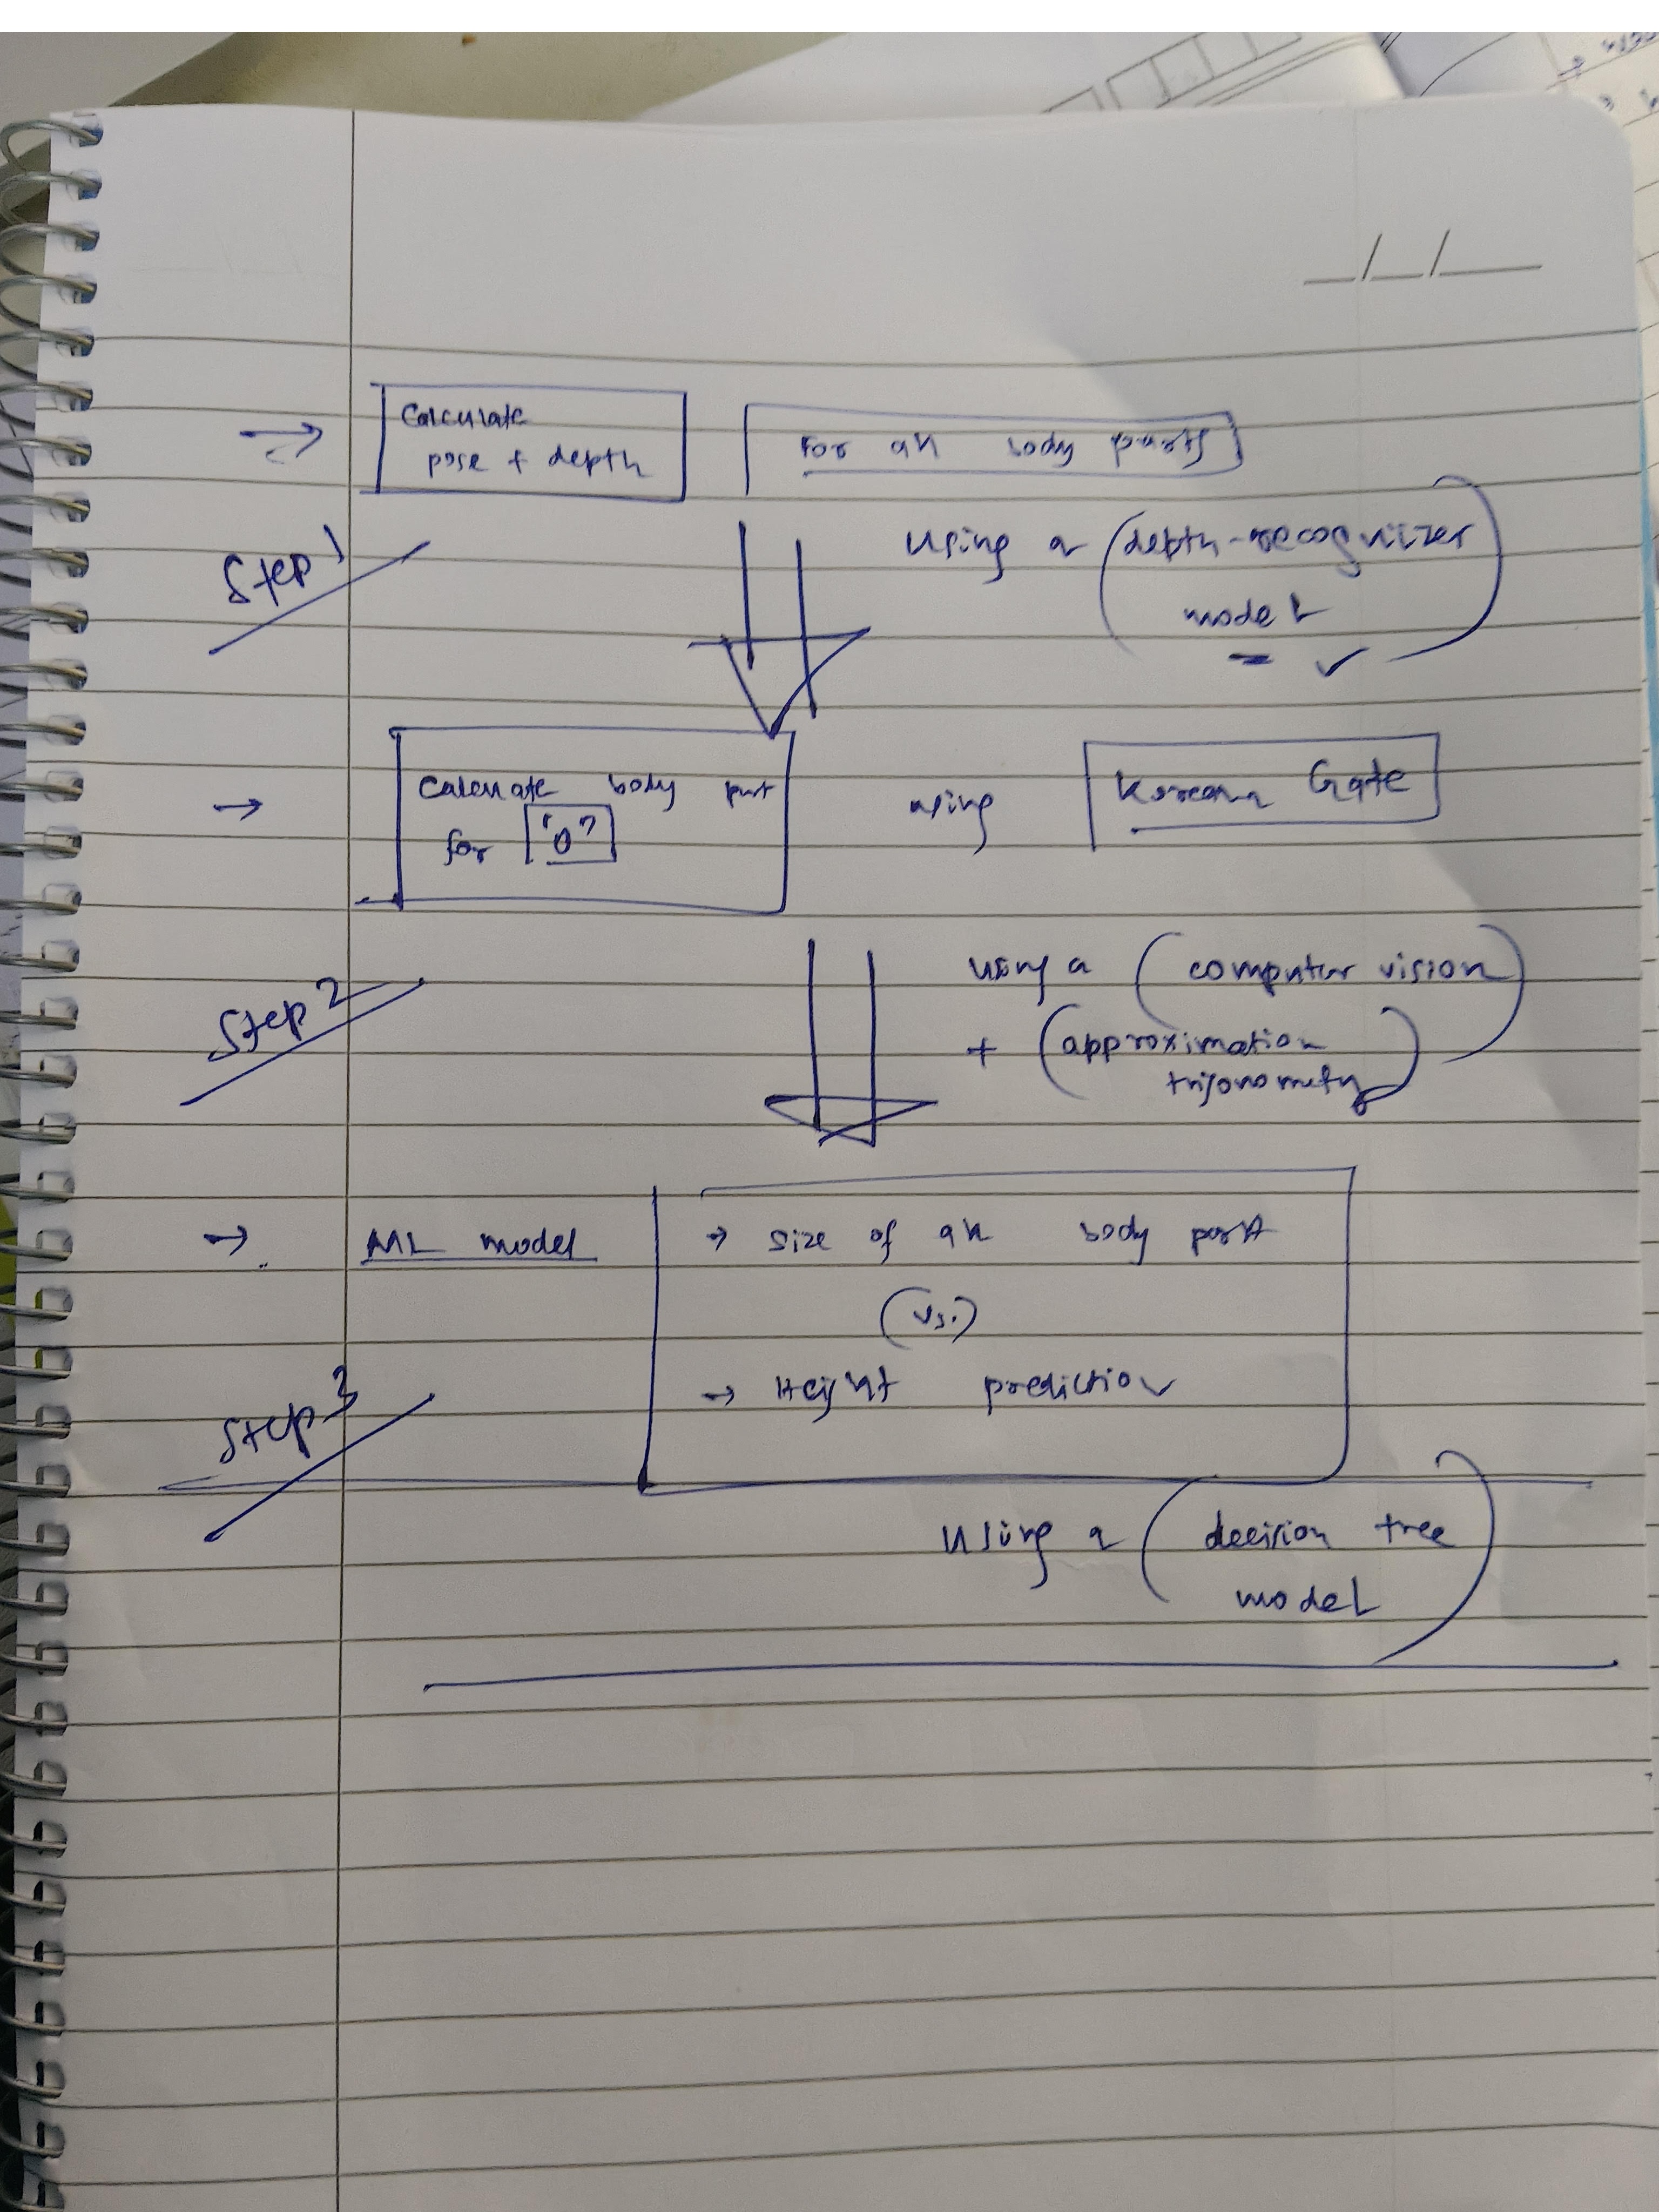 __/__/____
→ Calculate
pose + depth
For all body parts
Step 1
Using a (depth-recognizer
model)
= ✓
→ Calculate body part
for "θ"
using Korean Gate
Step 2
using a (computer vision)
+ (approximation
trigonometry)
→ ML model
→ Size of all body part
(vs.)
→ Height prediction
Step 3
Using a (decision tree
model)